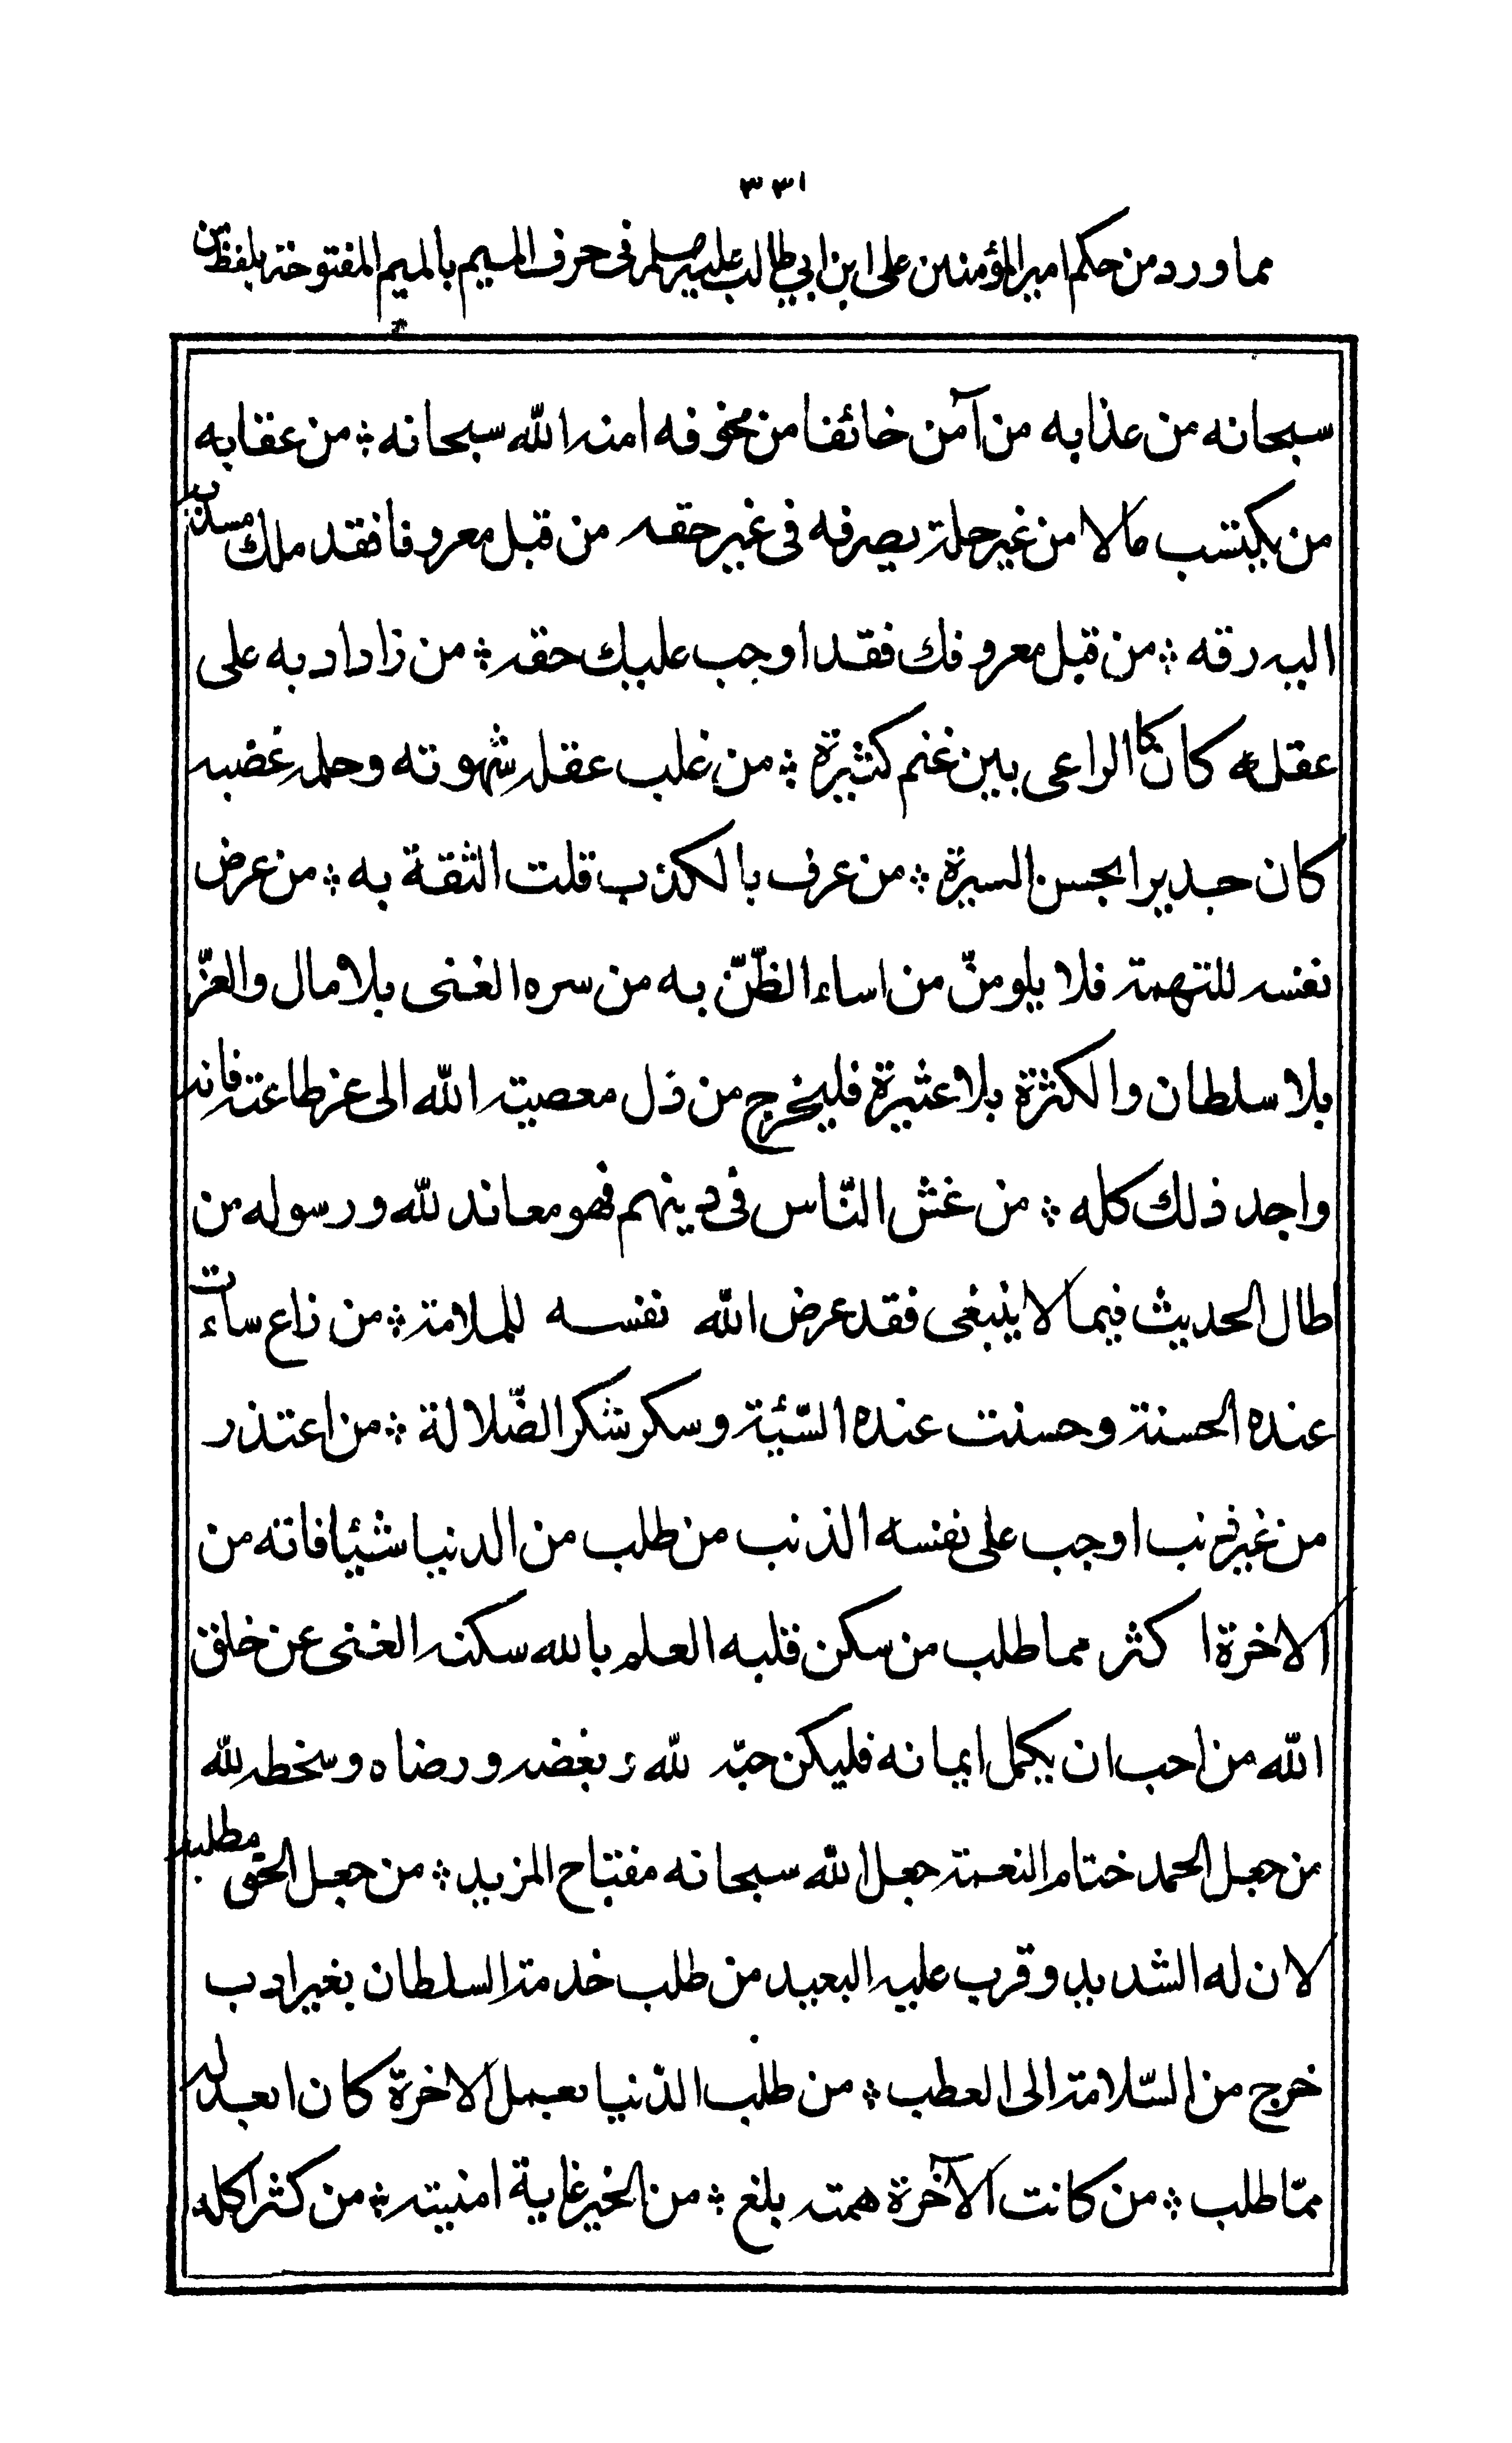 ٣٣١
مما ورد من حكم امير المؤمنين على ابن ابي طالب عليه صلم فى حرف الميم بالميم المفتوحة بلفظ من
سبحانه من عذابه من آمن خائفا من مخوفه امنه الله سبحانه ؞ من عقابه
من يكتسب مالا من غير حله يصرفه فى غير حقه من قبل معروفا فقد ملك مسديه
اليه رقه ؞ من قبل معروفك فقد اوجب عليك حقه ؞ من زاد ادبه على
عقله كان كالراعى بين غنم كثيرة ؞ من غلب عقله شهوته وحلمه غضبه
كان جديرا بحسن السيرة ؞ من عرف بالكذب قلت الثقة به ؞ من عرض
نفسه للتهمة فلا يلومنّ من اساء الظّنّ به من سره الغنى بلا مال والعزّ
بلا سلطان والكثرة بلا عثيرة فليخرج من ذل معصية الله الى عز طاعته فانه
واجد ذلك كله ؞ من غش النّاس فى دينهم فهو معاند لله ورسوله من
اطال الحديث فيما لا ينبغى فقد عرض الله نفسه للملامة ؞ من زاع ساءت
عنده الحسنة وحسنت عنده السّيئة وسكر شكر الضّلالة ؞ من اعتذر
من غير ذنب اوجب على نفسه الذنب من طلب من الدنيا شيئا فاته من
الاخرة اكثر مما طلب من سكن قلبه العلم بالله سكنه الغنى عن خلق
الله من احب ان يكمل ايمانه فليكن حبّه لله و بغضه ورضاه وسخطه لله
من جعل الحمد ختام النعمة جعل الله سبحانه مفتاح المزيد ؞ من جعل الحق مطلبه
لان له الشديد وقرب عليه البعيد من طلب خدمة السلطان بغير ادب
خرج من السّلامة الى العطب ؞ من طلب الدّنيا بعمل الاخرة كان ابعد له
ممّا طلب ؞ من كانت الآخرة همته بلغ ؞ من الخير غاية امنيته ؞ من كثر اكله